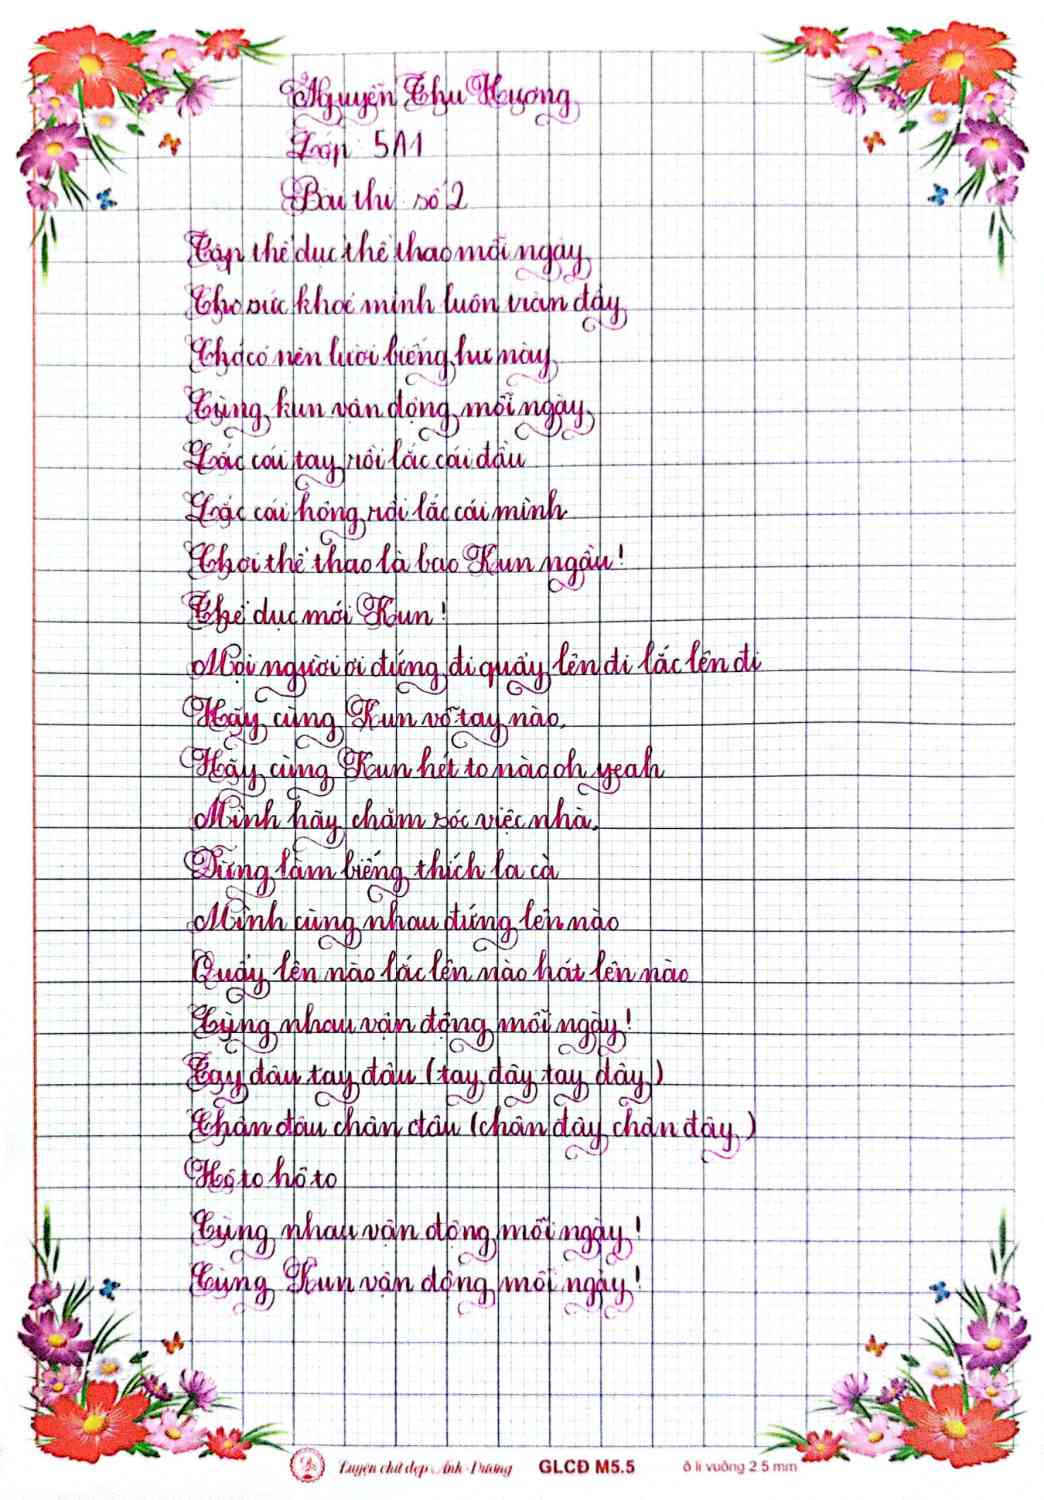 Nguyễn Thu Hương
Lớp 5A1
Bài thi số 2
Tập thể dục thể thao mỗi ngày
Cho sức khoẻ mình luôn tràn đầy
Chớ có nên lười biếng hư này
Cùng kun vận động mỗi ngày
Lắc cái tay rồi lắc cái đầu
Lắc cái hông rồi lắc cái mình
Chơi thể thao là bao Kun ngầu!
Thể dục mới Kun!
Mọi người ơi đứng đi quẩy lên đi lắc lên đi
Hãy cùng Kun vỗ tay nào,
Hãy cùng Kun hét to nào oh yeah
Mình hãy chăm sóc việc nhà,
Đừng làm biếng thích la cà
Mình cùng nhau đứng lên nào
Quẩy lên nào lắc lên nào hát lên nào
Cùng nhau vận động mỗi ngày!
Tay đâu tay đâu (tay đây tay đây)
Chân đâu chân đâu (chân đây chân đây)
Hô to hô to
Cùng nhau vận động mỗi ngày!
Cùng Kun vận động mỗi ngày!
Luyện chữ đẹp Ánh Dương GLCĐ M5.5 ô li vuông 2.5 mm